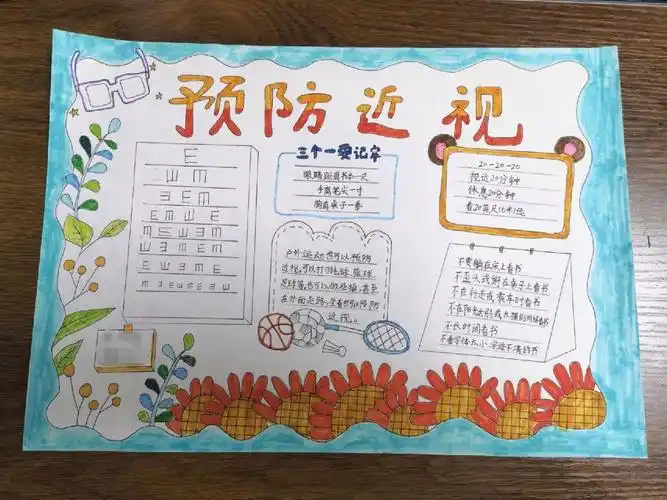 预防近视
E
三个一要记牢
眼睛距离书本一尺
手离笔尖一寸
胸离桌子一拳
20-20-20
视近20分钟
休息20分钟
看20英尺(6米)远
户外运动也可以预防
近视,可以打羽毛球,篮球,
足球等,也可以做些操,甚至
在外面走路,坐着也可以预防
近视。
不要躺在床上看书
不歪头或俯在桌子上看书
不在行走或乘车时看书
不在阳光太弱或太强的时候看书
不长时间看书
不看字体太小、字迹不清的书